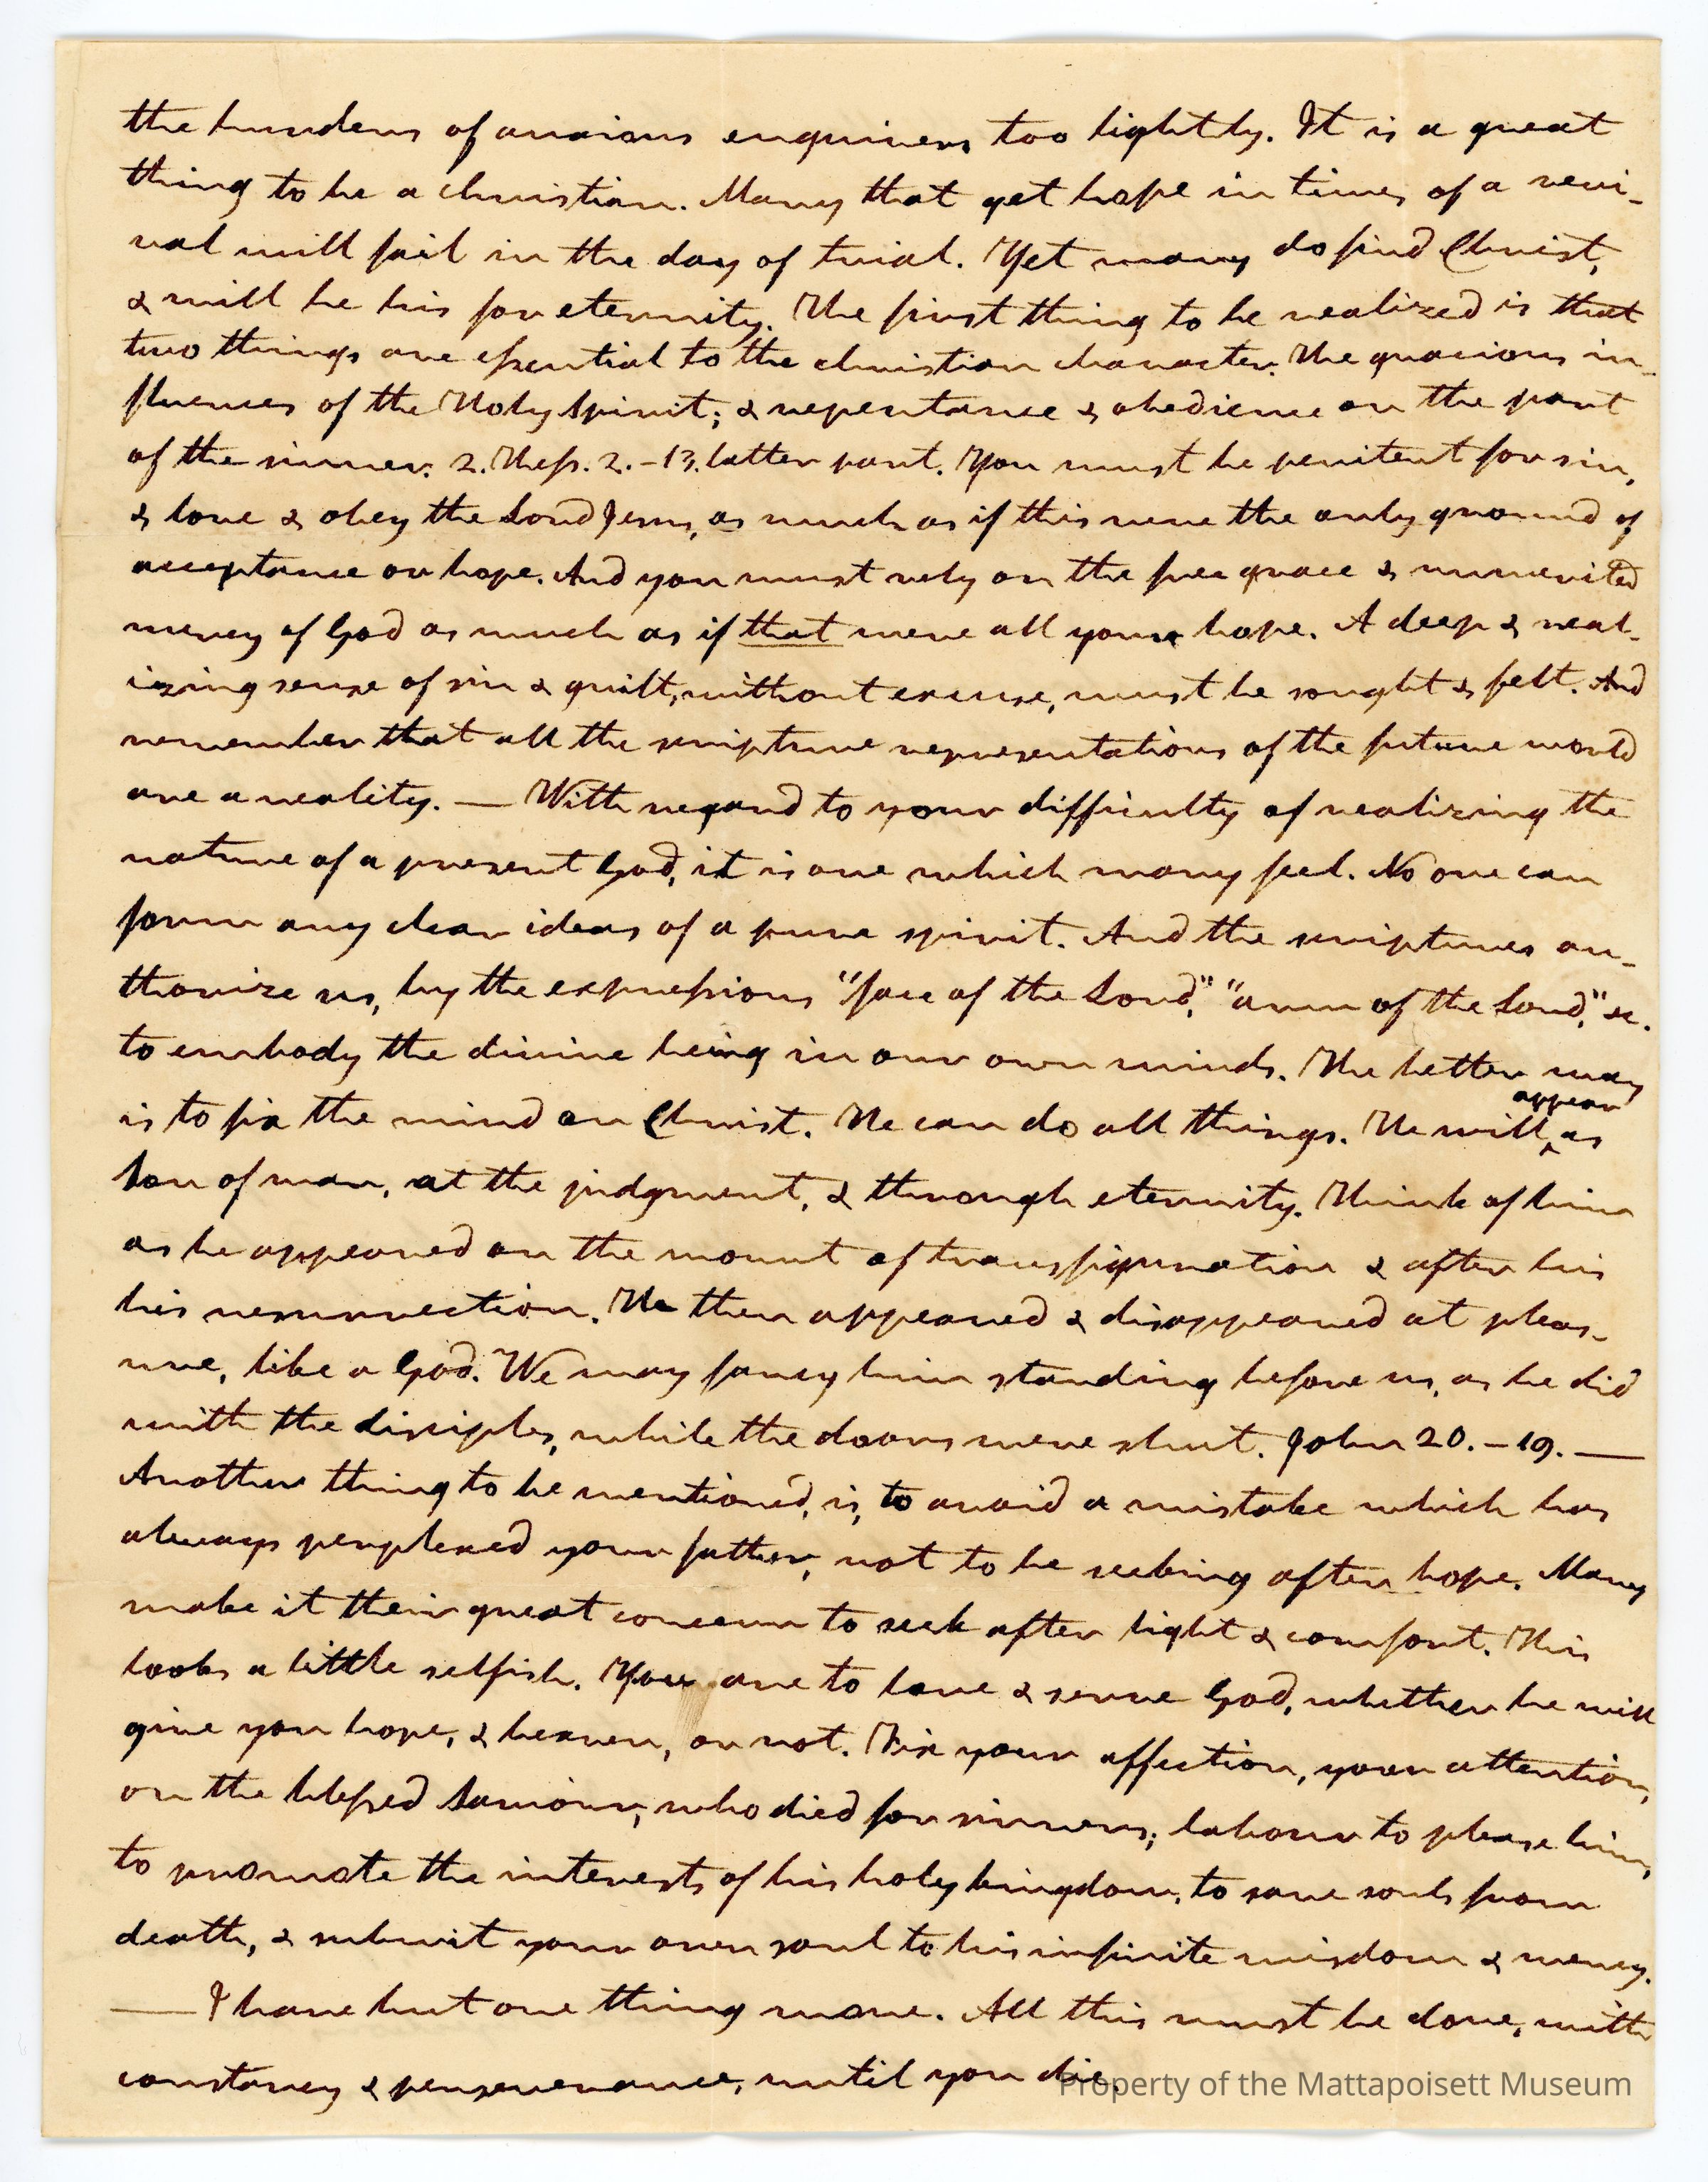 the burdens of anxious enquirers too lightly. It is a great
thing to be a christian. Many that get hope in times of a revi-
val will fail in the day of trial. Yet many do find Christ,
& will be his for eternity. The first thing to be realized is that
two things are essential to the christian character. The gracious in-
fluences of the Holy Spirit; & repentance & obedience on the part
of the sinner. 2. Thess. 2.-13. latter part. You must be penitent for sin,
& love & obey the Lord Jesus, as much as if this were the only ground of
acceptance or hope. And you must rely on the free grace & unmerited
mercy of God as much as if that were all your hope. A deep & real-
izing sense of sin & guilt, without excuse, must be sought & felt. And
remember that all the scripture representations of the future world
are a reality. — With regard to your difficulty of realizing the
nature of a present God, it is one which many feel. No one can
form any clear ideas of a pure spirit. And the scriptures au-
thorize us, by the expressions "face of the Lord," "arm of the Lord," &c.
to embody the divine being in our own minds. The better way
is to fix the mind on Christ. He can do all things. He will appear as
Son of man, at the judgment, & through eternity. Think of him
as he appeared on the mount of transfiguration & after his
his resurrection. He then appeared & disappeared at pleas-
ure, like a God. We may fancy him standing before us, as he did
with the disciples, while the doors were shut. John 20.-19. —
Another thing to be mentioned, is, to avoid a mistake which has
always perplexed your father, not to be seeking after hope. Many
make it their great concern to seek after light & comfort. This
looks a little selfish. You are to love & serve God, whether he will
give you hope, & heaven, or not. Fix your affection, your attention,
on the blessed Saviour, who died for sinners; labour to please him,
to promote the interests of his holy kingdom, to save souls from
death, & submit your own soul to his infinite wisdom & mercy.
— I have but one thing more. All this must be done, with
constancy & perseverance, until you die.
Property of the Mattapoisett Museum